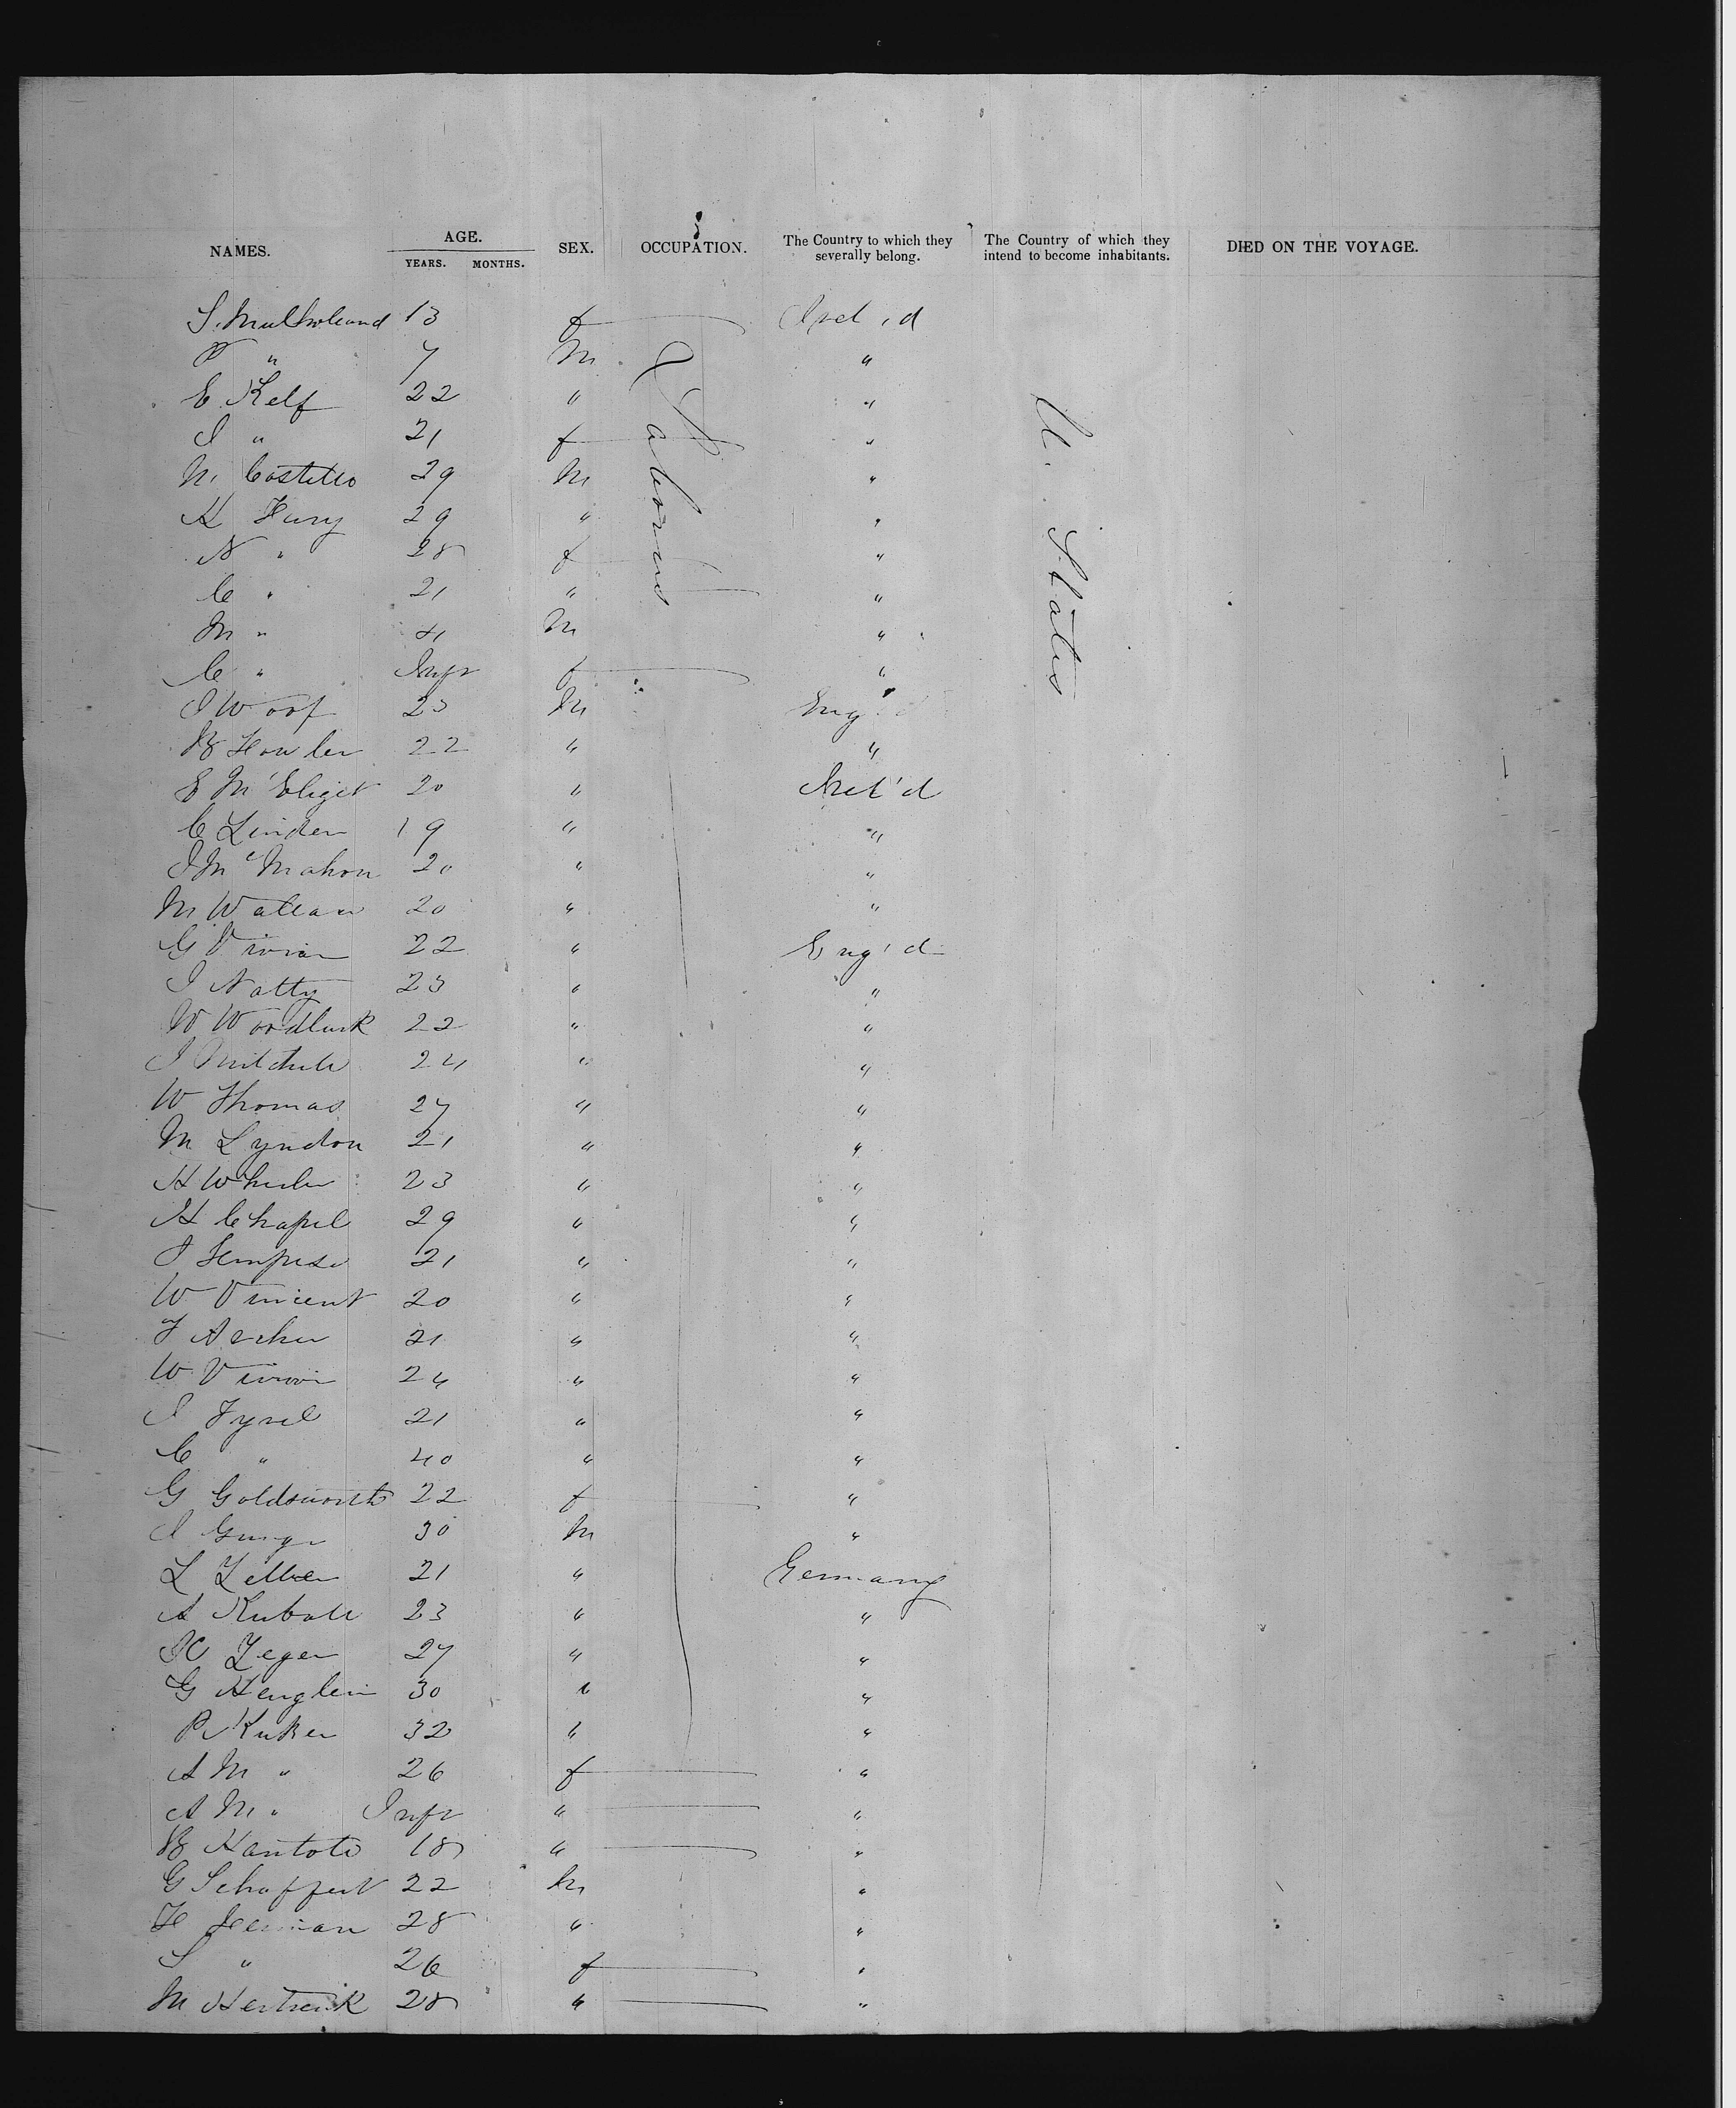 NAMES. AGE. YEARS. MONTHS. SEX. OCCUPATION. The Country to which they severally belong. The Country of which they intend to become inhabitants. DIED ON THE VOYAGE.
S. Mulholland 13 f Irel'd
P " 7 M "
E Kelf 22 " "
J " 21 f "
M Costello 29 M "
H Fury 29 " "
N " 28 f "
C " 21 " "
M " 4 M "
C " Inft f "
J Woof 23 M Eng'd
B Fowler 22 " "
E McEligot 20 " Irel'd
C Linden 19 " "
J McMahon 20 " "
M 20 " "
G Vivian 22 " Eng'd
J Natty 23 " "
W 22 " "
J Mitchell 24 " "
W Thomas 27 " "
M Lyndon 21 " "
H Wheeler 23 " "
H Chapel 29 " "
J 21 " "
W Vincent 20 " "
F Archer 21 " "
W Vivian 24 " "
J Tyrel 21 " "
C " 40 " "
G Goldsworth 22 f "
J 30 M "
L Zeller 21 " Germany
A 23 " "
Zeger 27 " "
G Henglein 30 " "
P 32 " "
A M " 26 f "
A M " Inft " "
B 18 " "
G Schoffert 22 M "
28 " "
S " 26 f "
M 28 " "
Laborers
U. States